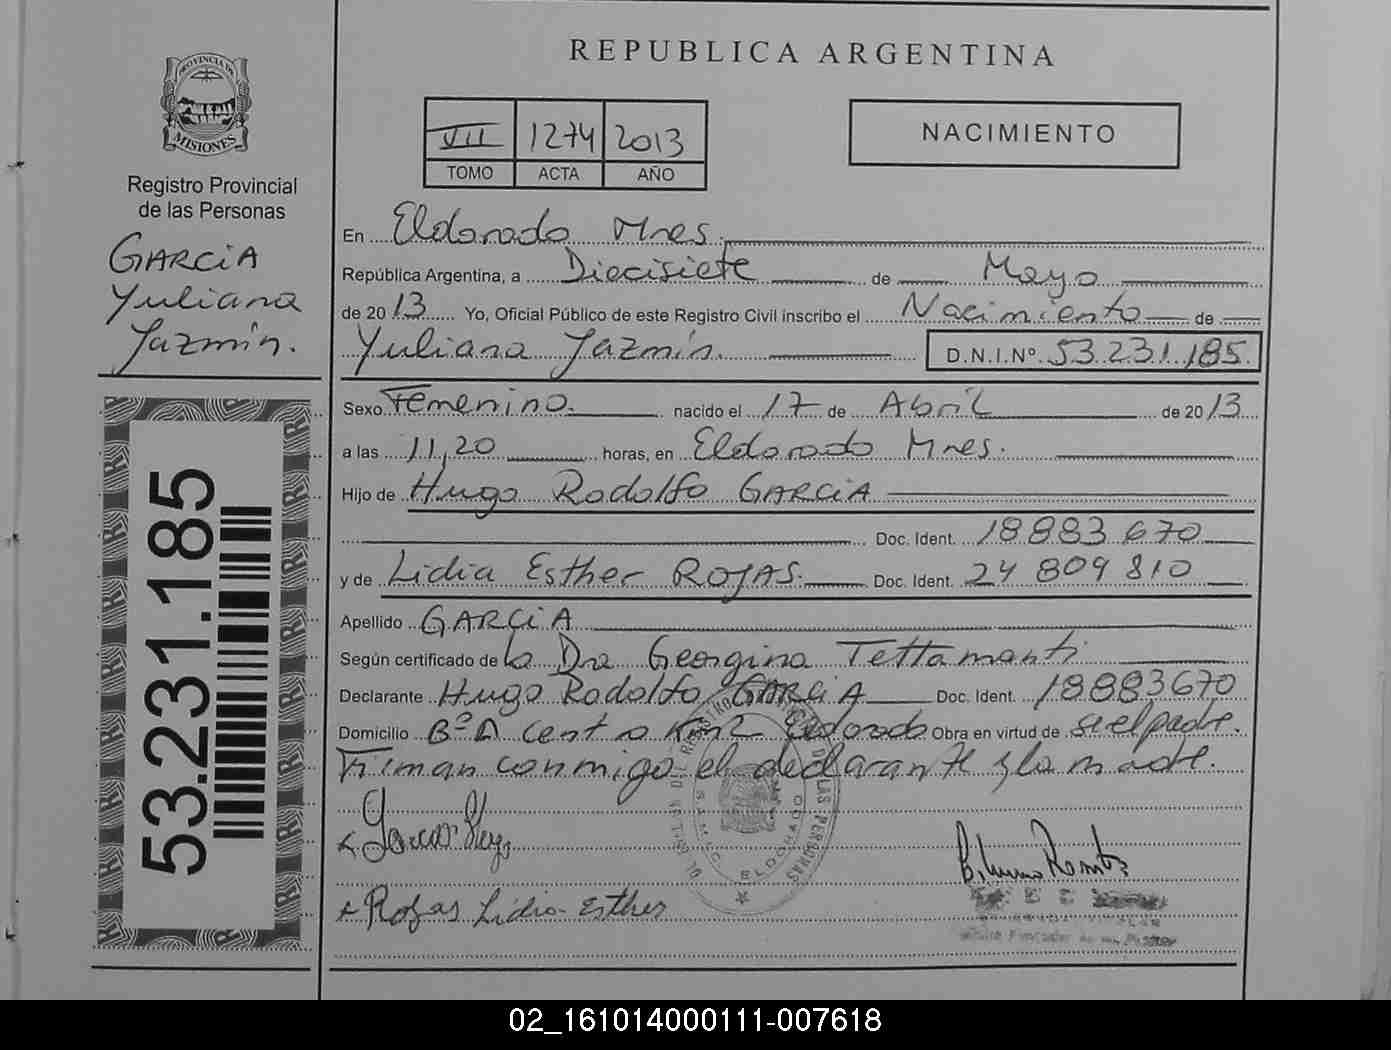 REPUBLICA ARGENTINA
PROVINCIA DE
MISIONES
Registro Provincial
de las Personas
GARCiA
Yuliana
Jazmín.
VII 1274 2013
TOMO ACTA AÑO
NACIMIENTO
En Eldorado Mnes.
República Argentina, a Diecisiete de Mayo
de 2013 Yo, Oficial Público de este Registro Civil inscribo el Nacimiento de
Yuliana Jazmín. D.N.I.Nº 53.231.185
Sexo Femenino. nacido el 17 de Abril de 2013
a las 11,20 horas, en Eldorado Mnes.
Hijo de Hugo Rodolfo GARCiA
Doc. Ident. 18883 670
y de Lidia Esther ROJAS. Doc. Ident. 24 809 810
Apellido GARCiA
Según certificado de la Dra Georgina Tettamanti
Declarante Hugo Rodolfo GARCiA Doc. Ident. 18883670
Domicilio Bº A Centro Km2 Eldorado Obra en virtud de si el padre.
Firman conmigo el declarante y la madre.
Rojas Lidia Esther
ELDORADO
53.231.185
02_161014000111-007618